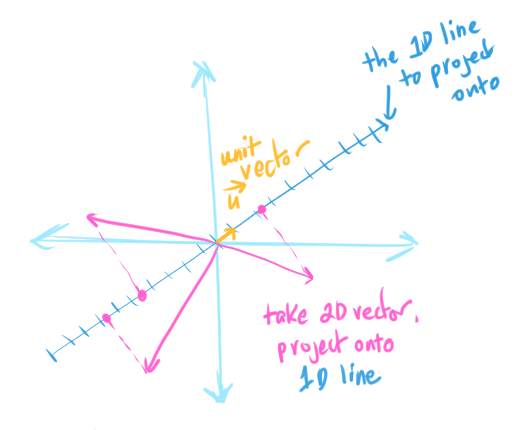 the 1D line
to project
onto
unit
vector
u
take 2D vector,
project onto
1D line